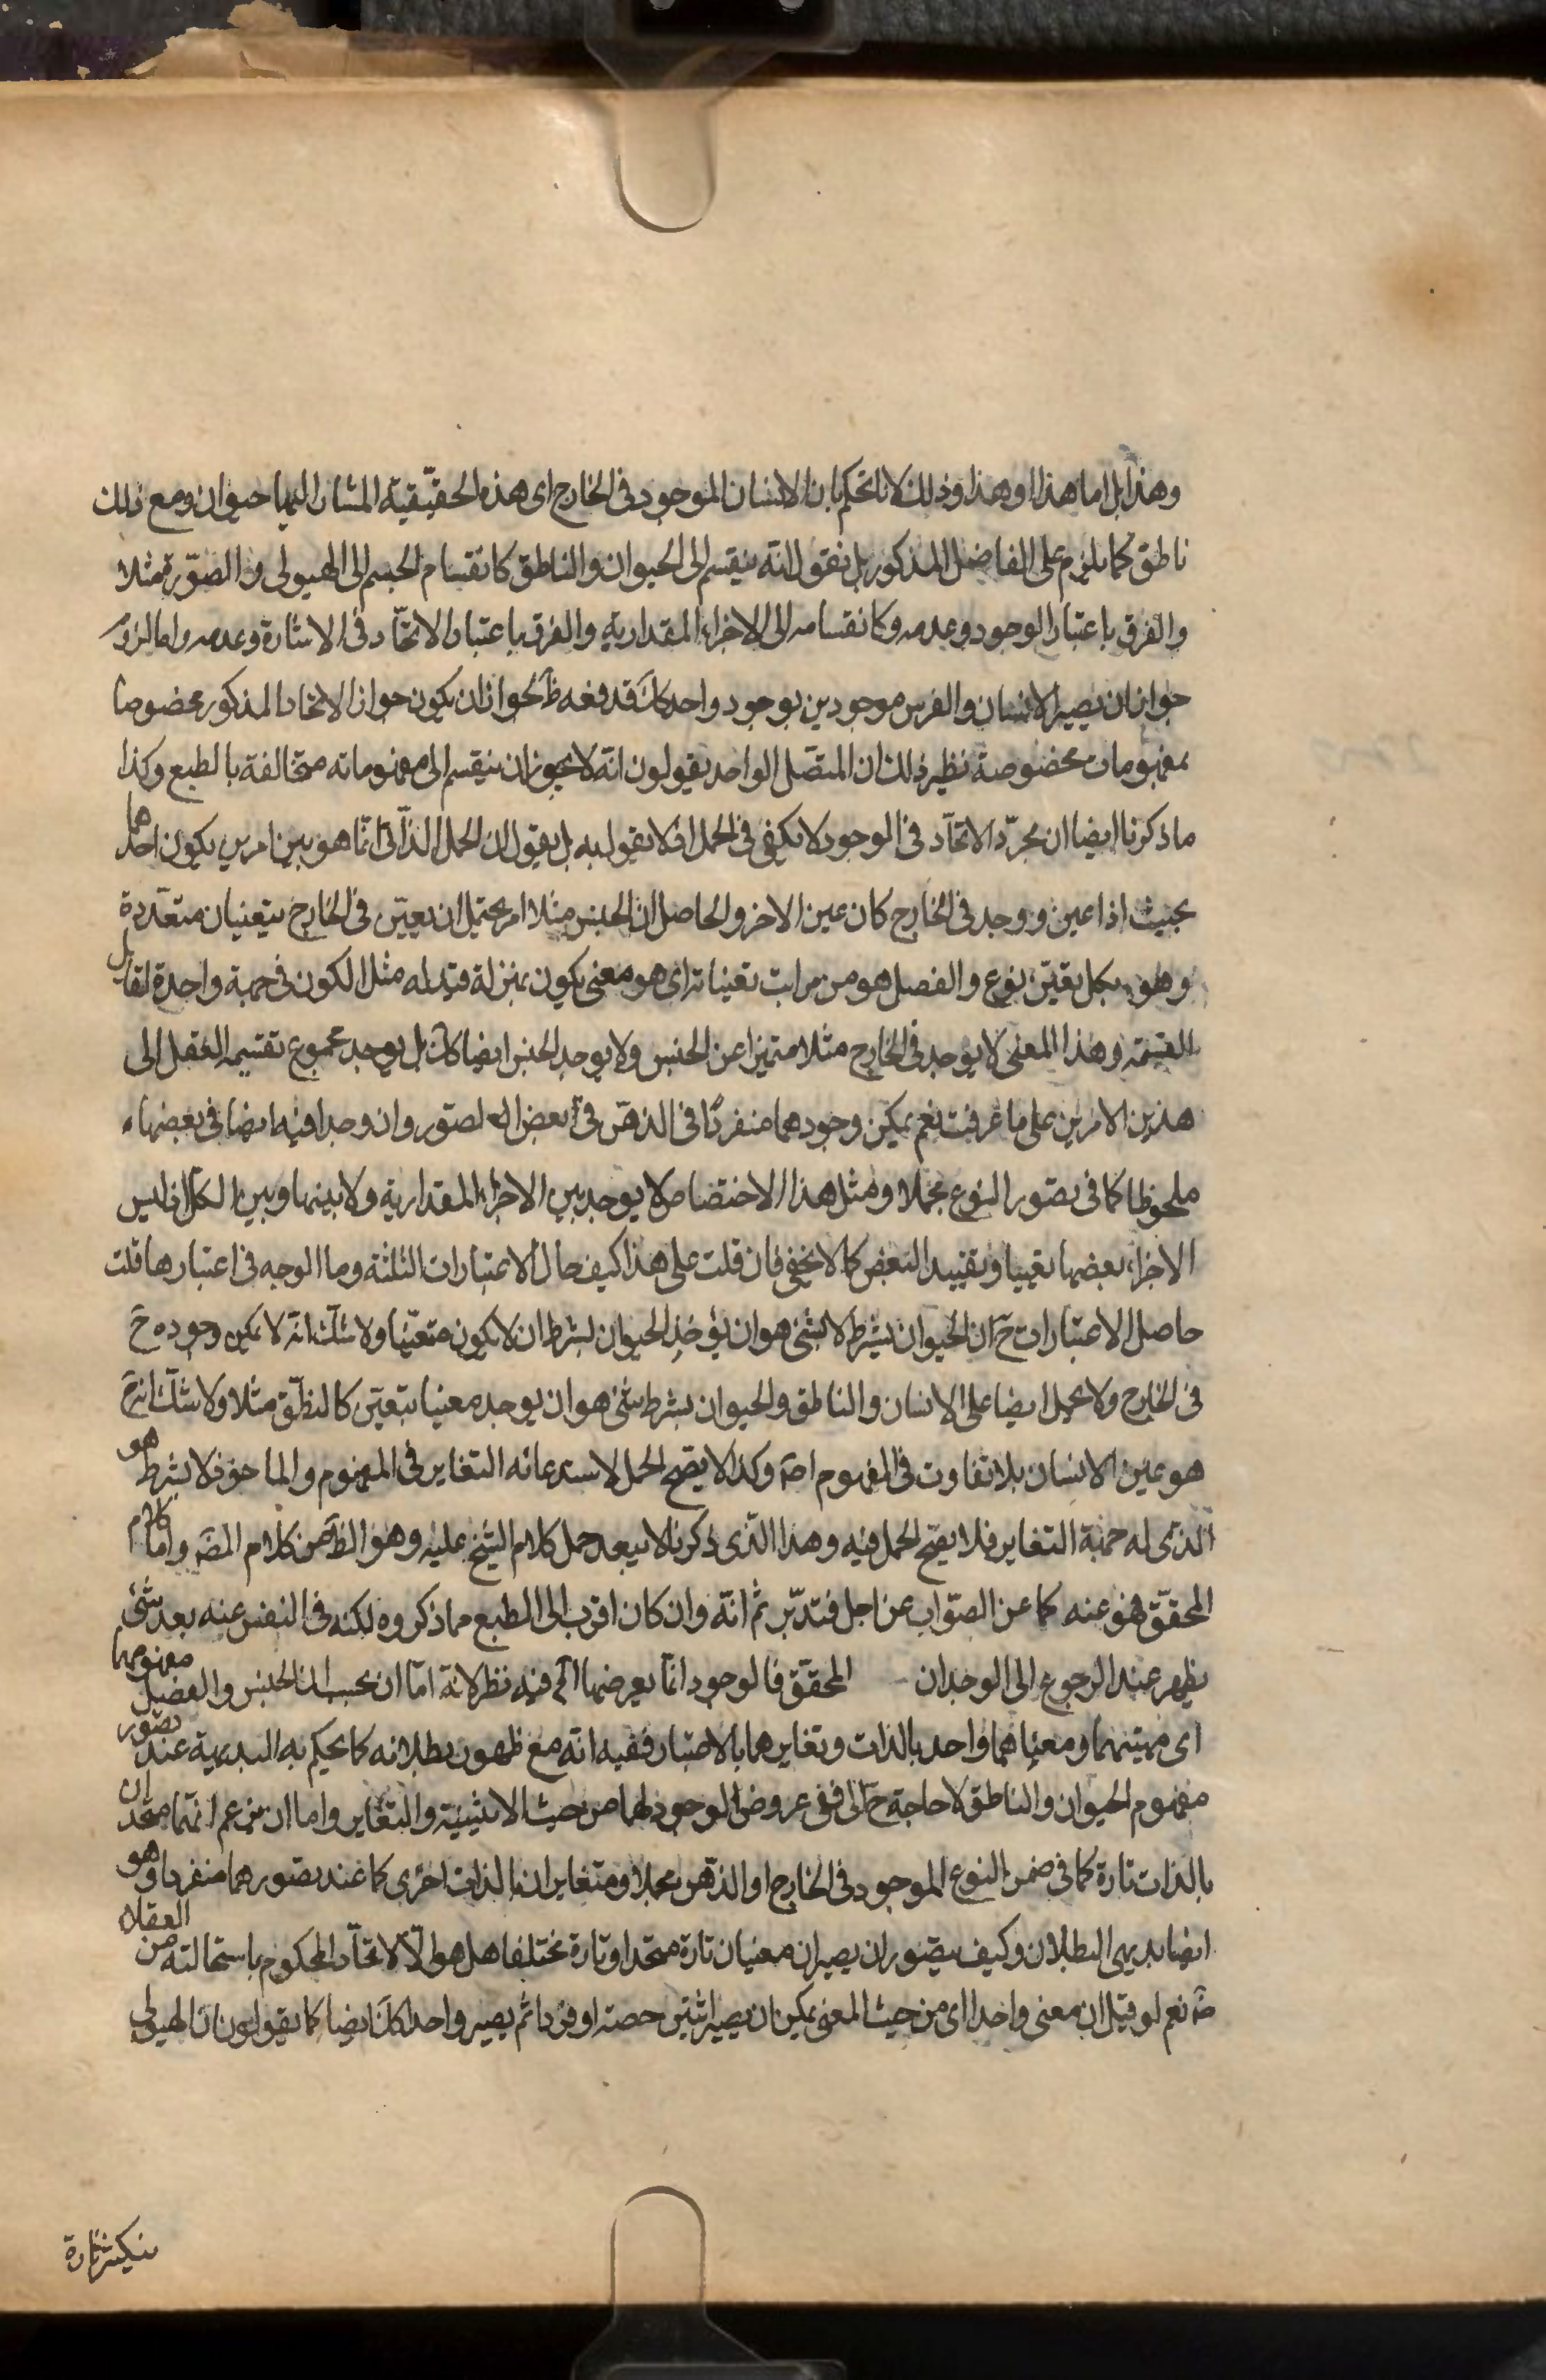 وهذا بل اما هذا او هذا وذلك لانا نحكم بان الانسان الموجود فى الخارج اى هذه الحقيقية المشار اليها حيوان ومع ذلك
ناطق كما يلزم على الفاضل المذكور بل نقول انه ينقسم الى الحيوان والناطق كانقسام الجسم الى الهيولى والصّورة مثلا
والفرق باعتبار الوجود وعدمه وكانقسامه الى الاجزاء المقدارية والفرق باعتبار الاتحّاد فى الاشارة وعدمه واما لزوم
جواز ان يصير الانسان والفرس موجودين بوجود واحد كك فدفعه ظ لجواز ان يكون جواز الاتحاد المذكور مخصوصا
بمفهومات مخصوصة نظير ذلك ان المتصّل الواحد يقولون انه لا يجوز ان ينقسم الى مفهوماته متخالفة بالطبع وكذا
ما ذكرنا ايضا ان مجرّد الاتحّاد فى الوجود لا يكفى فى الحمل اذ لا يقول به بل يقول ان الحمل الذّاتى انّما هو بين امرين يكون احدهما
بحيث اذا عين ووجد فى الخارج كان عين الاخر والحاصل ان الجنس مثلا امر يحتمل ان يعيّن فى الخارج بتعينات متعّددة
وهو بكل تعيّن نوع والفصل هو من مراتب تعيناته اى هو معنى يكون بمنزلة قيد له مثل الكون فى جهة واحدة لقابل
القسمة وهذا المعنى لا يوجد فى الخارج مثلا متميزا عن الجنس ولا يوجد الجنس ايضا كك بل يوجد مجموع تقسيمه العقل الى
هذين الامرين على ما عرفت نعم يمكن وجودهما منفردًا فى الذهن فى بعض التصور وان وجدا فيه ايضا فى بعضها
ملحوظا كما فى تصور النوع مجملا ومثل هذا الاختصاص لا يوجد بين الاجزاء المقدارية ولا بينها وبين الكل اذ ليس
الاجزاء بعضها تعيينا وتقييد البعض كما لا يخفى فان قلت على هذا كيف حال الاعتبارات الثلثة وما الوجه فى اعتبارها قلت
حاصل الاعتبارات ح ان الحيوان بشرط لا شئ هو ان يؤخذ الحيوان بشرط ان لا يكون متعّينا ولا شكّ انه لا يمكن وجوده ح
فى الخارج ولا يحمل ايضا على الانسان والناطق والحيوان بشرط شئ هو ان يوجد معينا بتعيّن كالنطّق مثلا ولا شكّ انه ح
هو عين الانسان بلا تفاوت فى المفهوم اصَ وكذا لا يصّح الحمل لاستدعائه التغاير فى المفهوم والماخوذ لا بشرط هو
الذّى له جهة التغاير فلا يصّح الحمل فيه وهذا الذّى ذكرنا لا يبعد حمل كلام الشيخ عليه وهو الظَ من كلام المصَ واما كلام
المحقّق فهو عنه كما عن الصوّاب عن اجل فتدبّر ثم انّه وان كان اقرب الى الطبع مما ذكروه لكنه فى النفس عنه بعد شئ
يظهر عند الرجوع الى الوجدان المحقّق فالوجود انمّا يعرضهما الخ فيه نظر لانه امّا ان يحسب ان الجنس والفصل مفهومهما
اى مهيتهما ومعناهما واحد بالذات وتغايرهما بالاعتبار ففيه انه مع ظهور بطلانه كما يحكم به البديهية عند تصّور
مفهوم الحيوان والناطق لا حاجة ح الى نفى عروض الوجود لهما من حيث الاثنينية والتغاير واما ان يزعم انهّما متحدان
بالذات تارة كما فى ضمن النوع الموجود فى الخارج او الذهن مجملا ومتغايران بالذات اخرى كما عند تصورهما منفردا وهو
ايضا بديهى البطلان وكيف يتصّور ان يصير ان معنيان تارة متحدا وتارة مختلفا هل هو الّا الاتحّاد المحكوم باستحالته من العقلاء
ثم نعم لو قيل ان معنى واحدا اى من حيث المعنى يمكن ان يصير اثنين حصته او فردا ثم يصير واحدا كك ايضا كما يقولون ان الهيولى